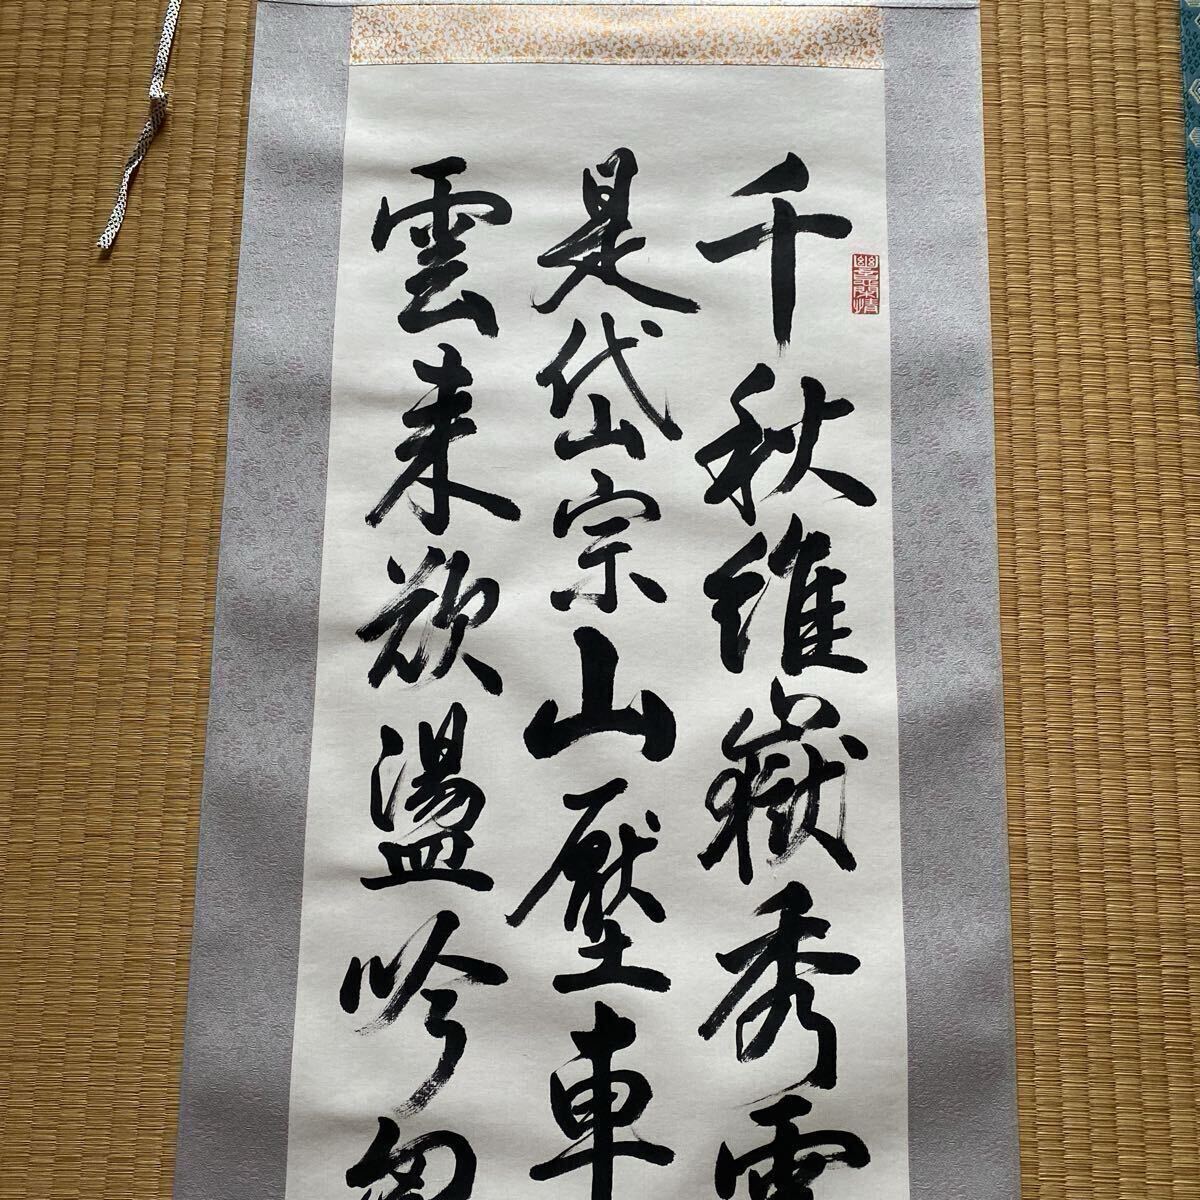 千秋維嶽秀
是岱宗山壓車
雲来欲盪吟